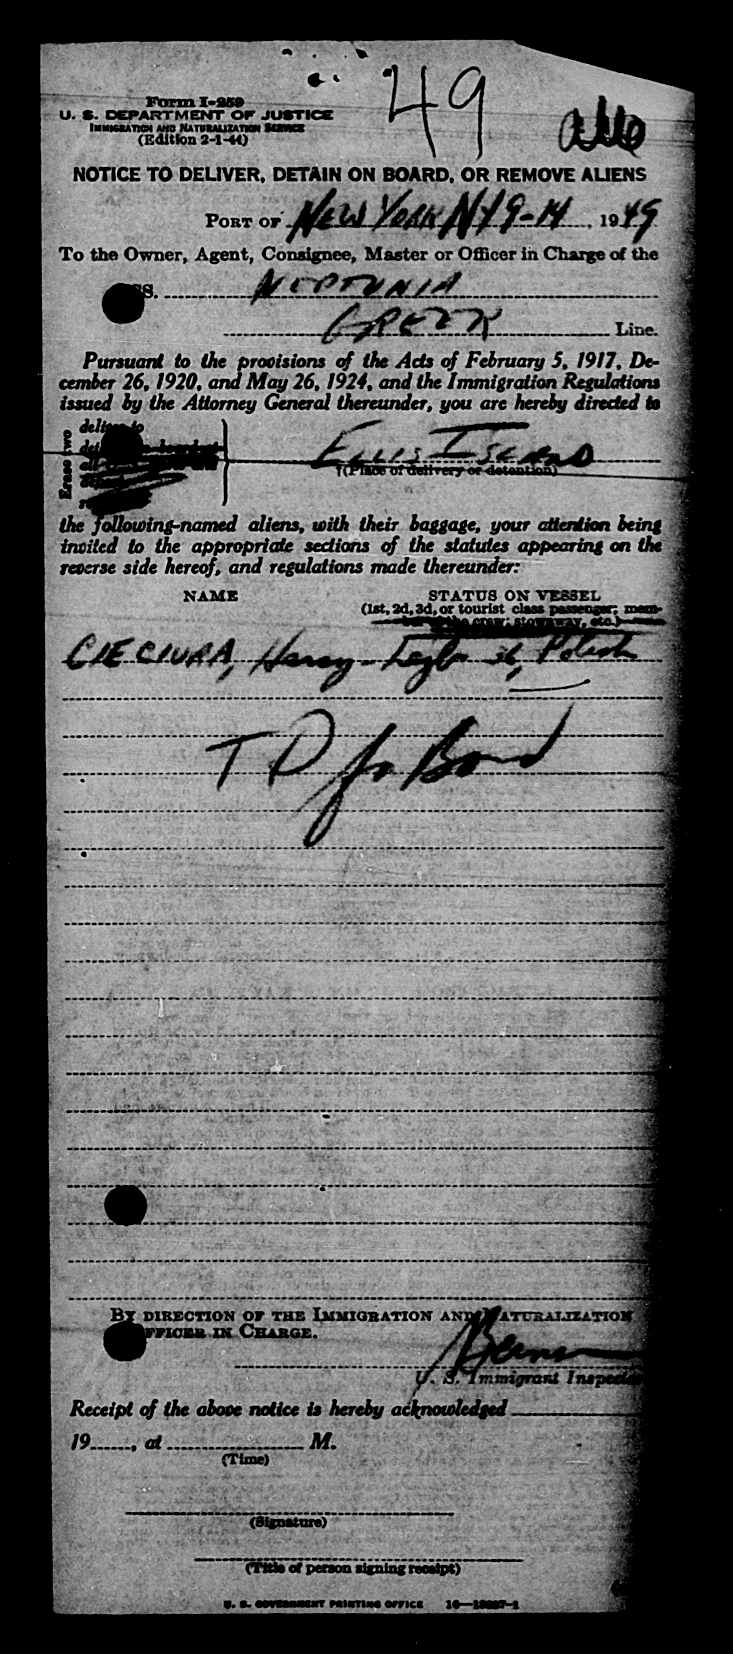 49
Form I-259
U. S. DEPARTMENT OF JUSTICE
IMMIGRATION AND NATURALIZATION SERVICE
(Edition 2-1-44)
NOTICE TO DELIVER, DETAIN ON BOARD, OR REMOVE ALIENS
PORT OF NEW YORK NY 9-14, 1949
To the Owner, Agent, Consignee, Master or Officer in Charge of the
SS. NEPTUNIA
GREEK Line.
Pursuant to the provisions of the Acts of February 5, 1917, De-
cember 26, 1920, and May 26, 1924, and the Immigration Regulations
issued by the Attorney General thereunder, you are hereby directed to
Erase two
deliver to
ELLIS ISLAND
(Place of delivery or detention)
the following-named aliens, with their baggage, your attention being
invited to the appropriate sections of the statutes appearing on the
reverse side hereof, and regulations made thereunder:
NAME STATUS ON VESSEL
(1st, 2d, 3d, or tourist class passenger; mem-
ber of the crew; stowaway, etc.)
CIECIURA, Polish
T D for Bond
BY DIRECTION OF THE IMMIGRATION AND NATURALIZATION
OFFICER IN CHARGE.
U. S. Immigrant Inspector
Receipt of the above notice is hereby acknowledged
19......, at M.
(Time)
(Signature)
(Title of person signing receipt)
U. S. GOVERNMENT PRINTING OFFICE